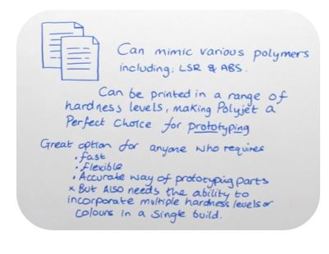 Can mimic various polymers
including; LSR & ABS.
Can be printed in a range of
hardness levels, making Polyjet a
Perfect Choice for prototyping
Great option for anyone who requires
• fast
• flexible
• Accurate way of prototyping parts
* But ALSO needs the ability to
incorporate multiple hardness levels or
colours in a single build.